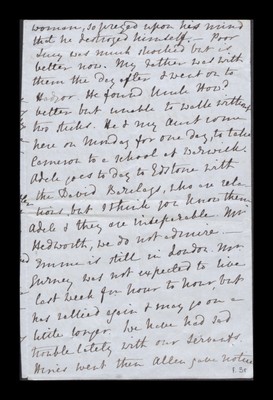 woman, so preyed upon his mind
that he destroyed himself. – Poor
Lucy was much shocked but is
better now. My father was with
them the day after I went on to
Hadzor. He found Uncle How.d
better but unable to walk without
his sticks. He & my Aunt come
here on Monday for one day, to take
Cameron to a school at Warwick.
Adele goes to day to Edstone with
the David Barclays, who are rela
tions but I think you know them
Adele & they are inseparable. Mr
Hedworth, we do not admire –
Emma is still in London. Mr
Gurney was not expected to live
last week for hour to hour but
has rallied again & may go on a
little longer. We have had sad
trouble lately with our servants.
went then Allen gave notice